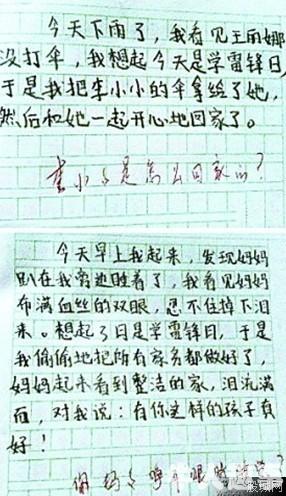 今天下雨了，我看见王雨娜
没打伞，我想起今天是学雷锋日，
于是我把李小小的伞拿给了她，
然后和她一起开心地回家了。
李小小是怎么回家的？
今天早上我起来，发现妈妈
趴在我旁边睡着了，我看见妈妈
布满血丝的双眼，忍不住掉下泪
来。想起了日是学雷锋日，于是
我偷偷地把所有家务都做好了，
妈妈起来看到整洁的家，泪流满
面，对我说：有你这样的孩子真
好！
你妈妈睁着眼睡觉？